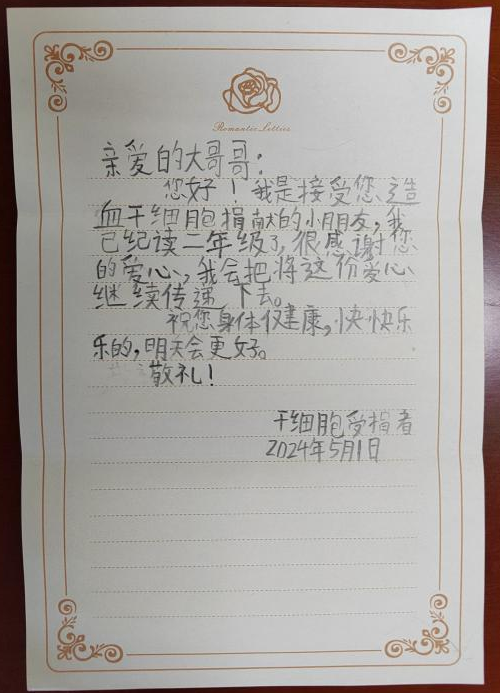 Romantic Letters
亲爱的大哥哥：
您好！我是接受您造
血干细胞捐献的小朋友，我
已纪读二年级了，很感谢您
的爱心，我会把将这份爱心
继续传递 下去。
祝您身体仅建康，快快乐
乐的，明天会更好。
敬礼！
干细胞受捐者
2024年5月1日